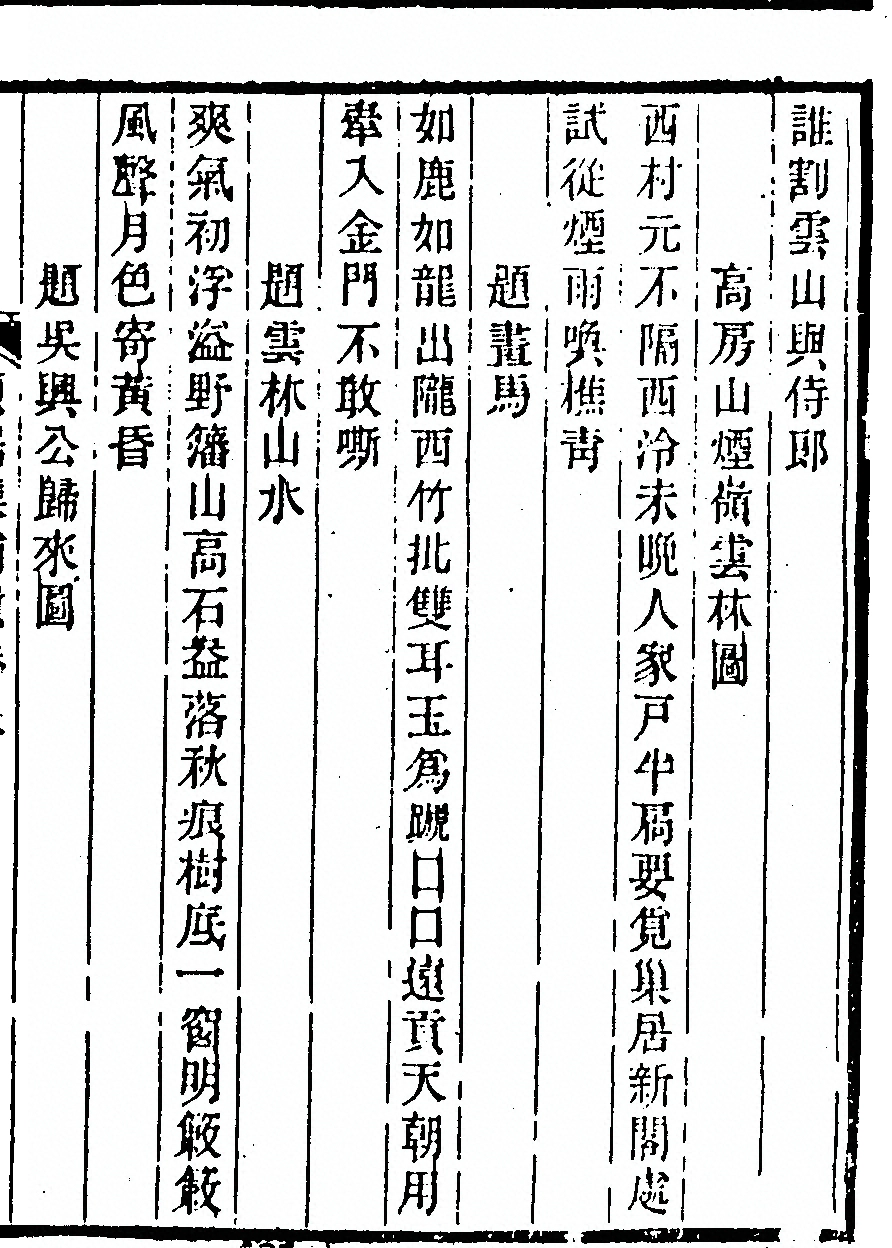 誰割雲山與侍郎
高房山煙嶺雲林圖
西村元不隔西泠未晚人家戸半扃要覓巢居新閣處
試從煙雨喚樵靑
題畫馬
如鹿如龍出隴西竹批雙耳玉爲蹏口口遠貢天朝用
牽入金門不敢嘶
題雲林山水
爽氣初浮溢野籓山高石益落秋痕樹底一窗明皦皦
風聲月色寄黃昏
題吳興公歸來圖